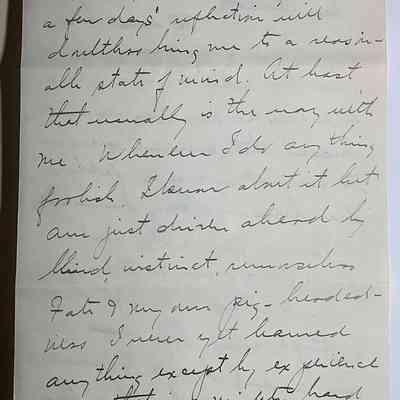 a few days' reflection will
doubtless bring me to a reason-
able state of mind. At least
that usually is the way with
me. Whenever I do anything
foolish, I know about it but
am just driven ahead by
blind instinct, remorseless
Fate & my own pig-headed-
ness. I never yet learned
anything except by experience
hard